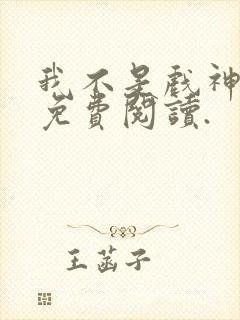 我不是戏神
免費閱讀.
王菡子